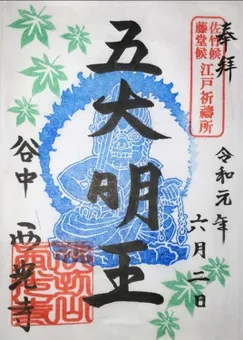 奉拝
佐竹候
藤堂候 江戸祈禱所
五大明王
令和元年
六月二日
谷中 西光寺